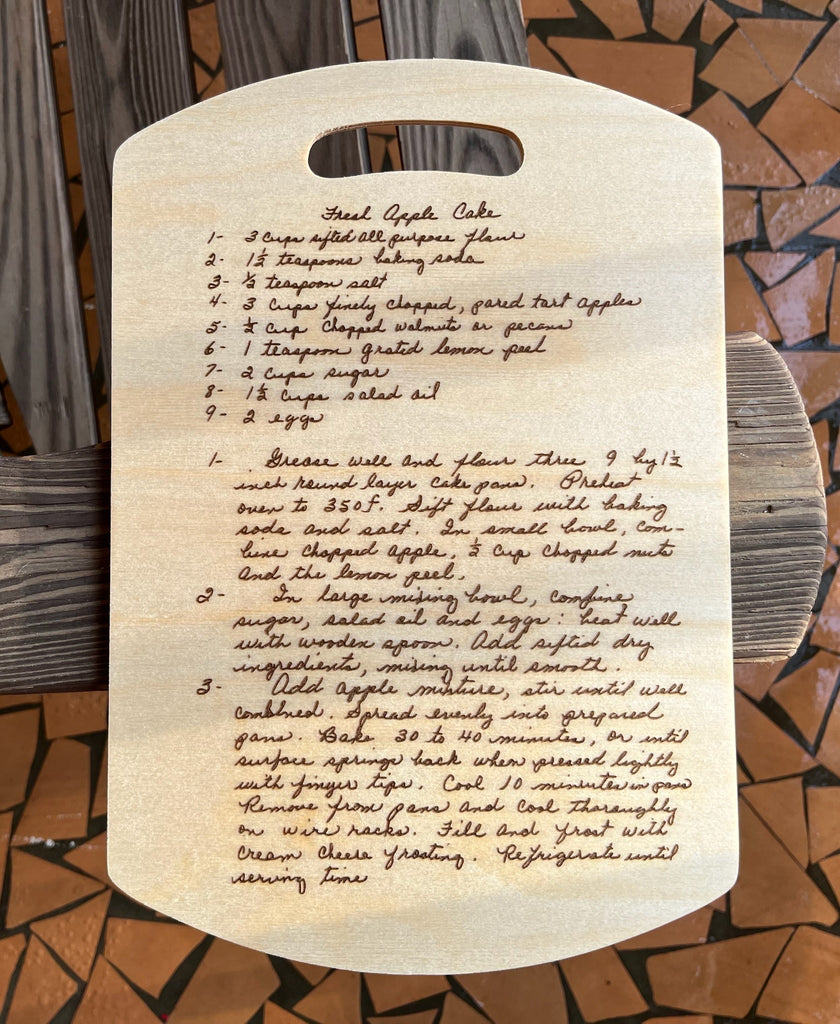 Fresh Apple Cake
1- 3 cups sifted all purpose flour
2- 1½ teaspoons baking soda
3- ½ teaspoon salt
4- 3 cups finely chopped, pared tart apples
5- ½ cup chopped walnuts or pecans
6- 1 teaspoon grated lemon peel
7- 2 cups sugar
8- 1½ cups salad oil
9- 2 eggs
1- Grease well and flour three 9 by 1½
inch round layer cake pans. Preheat
oven to 350 F. Sift flour with baking
soda and salt. In small bowl, com-
bine chopped apple, ½ cup chopped nuts
and the lemon peel.
2- In large mixing bowl, combine
sugar, salad oil and eggs: beat well
with wooden spoon. Add sifted dry
ingredients, mixing until smooth.
3- Add apple mixture, stir until well
combined. Spread evenly into prepared
pans. Bake 30 to 40 minutes, or until
surface springs back when pressed lightly
with finger tips. Cool 10 minutes in pans
Remove from pans and cool thoroughly
on wire racks. Fill and frost with
cream cheese frosting. Refrigerate until
serving time